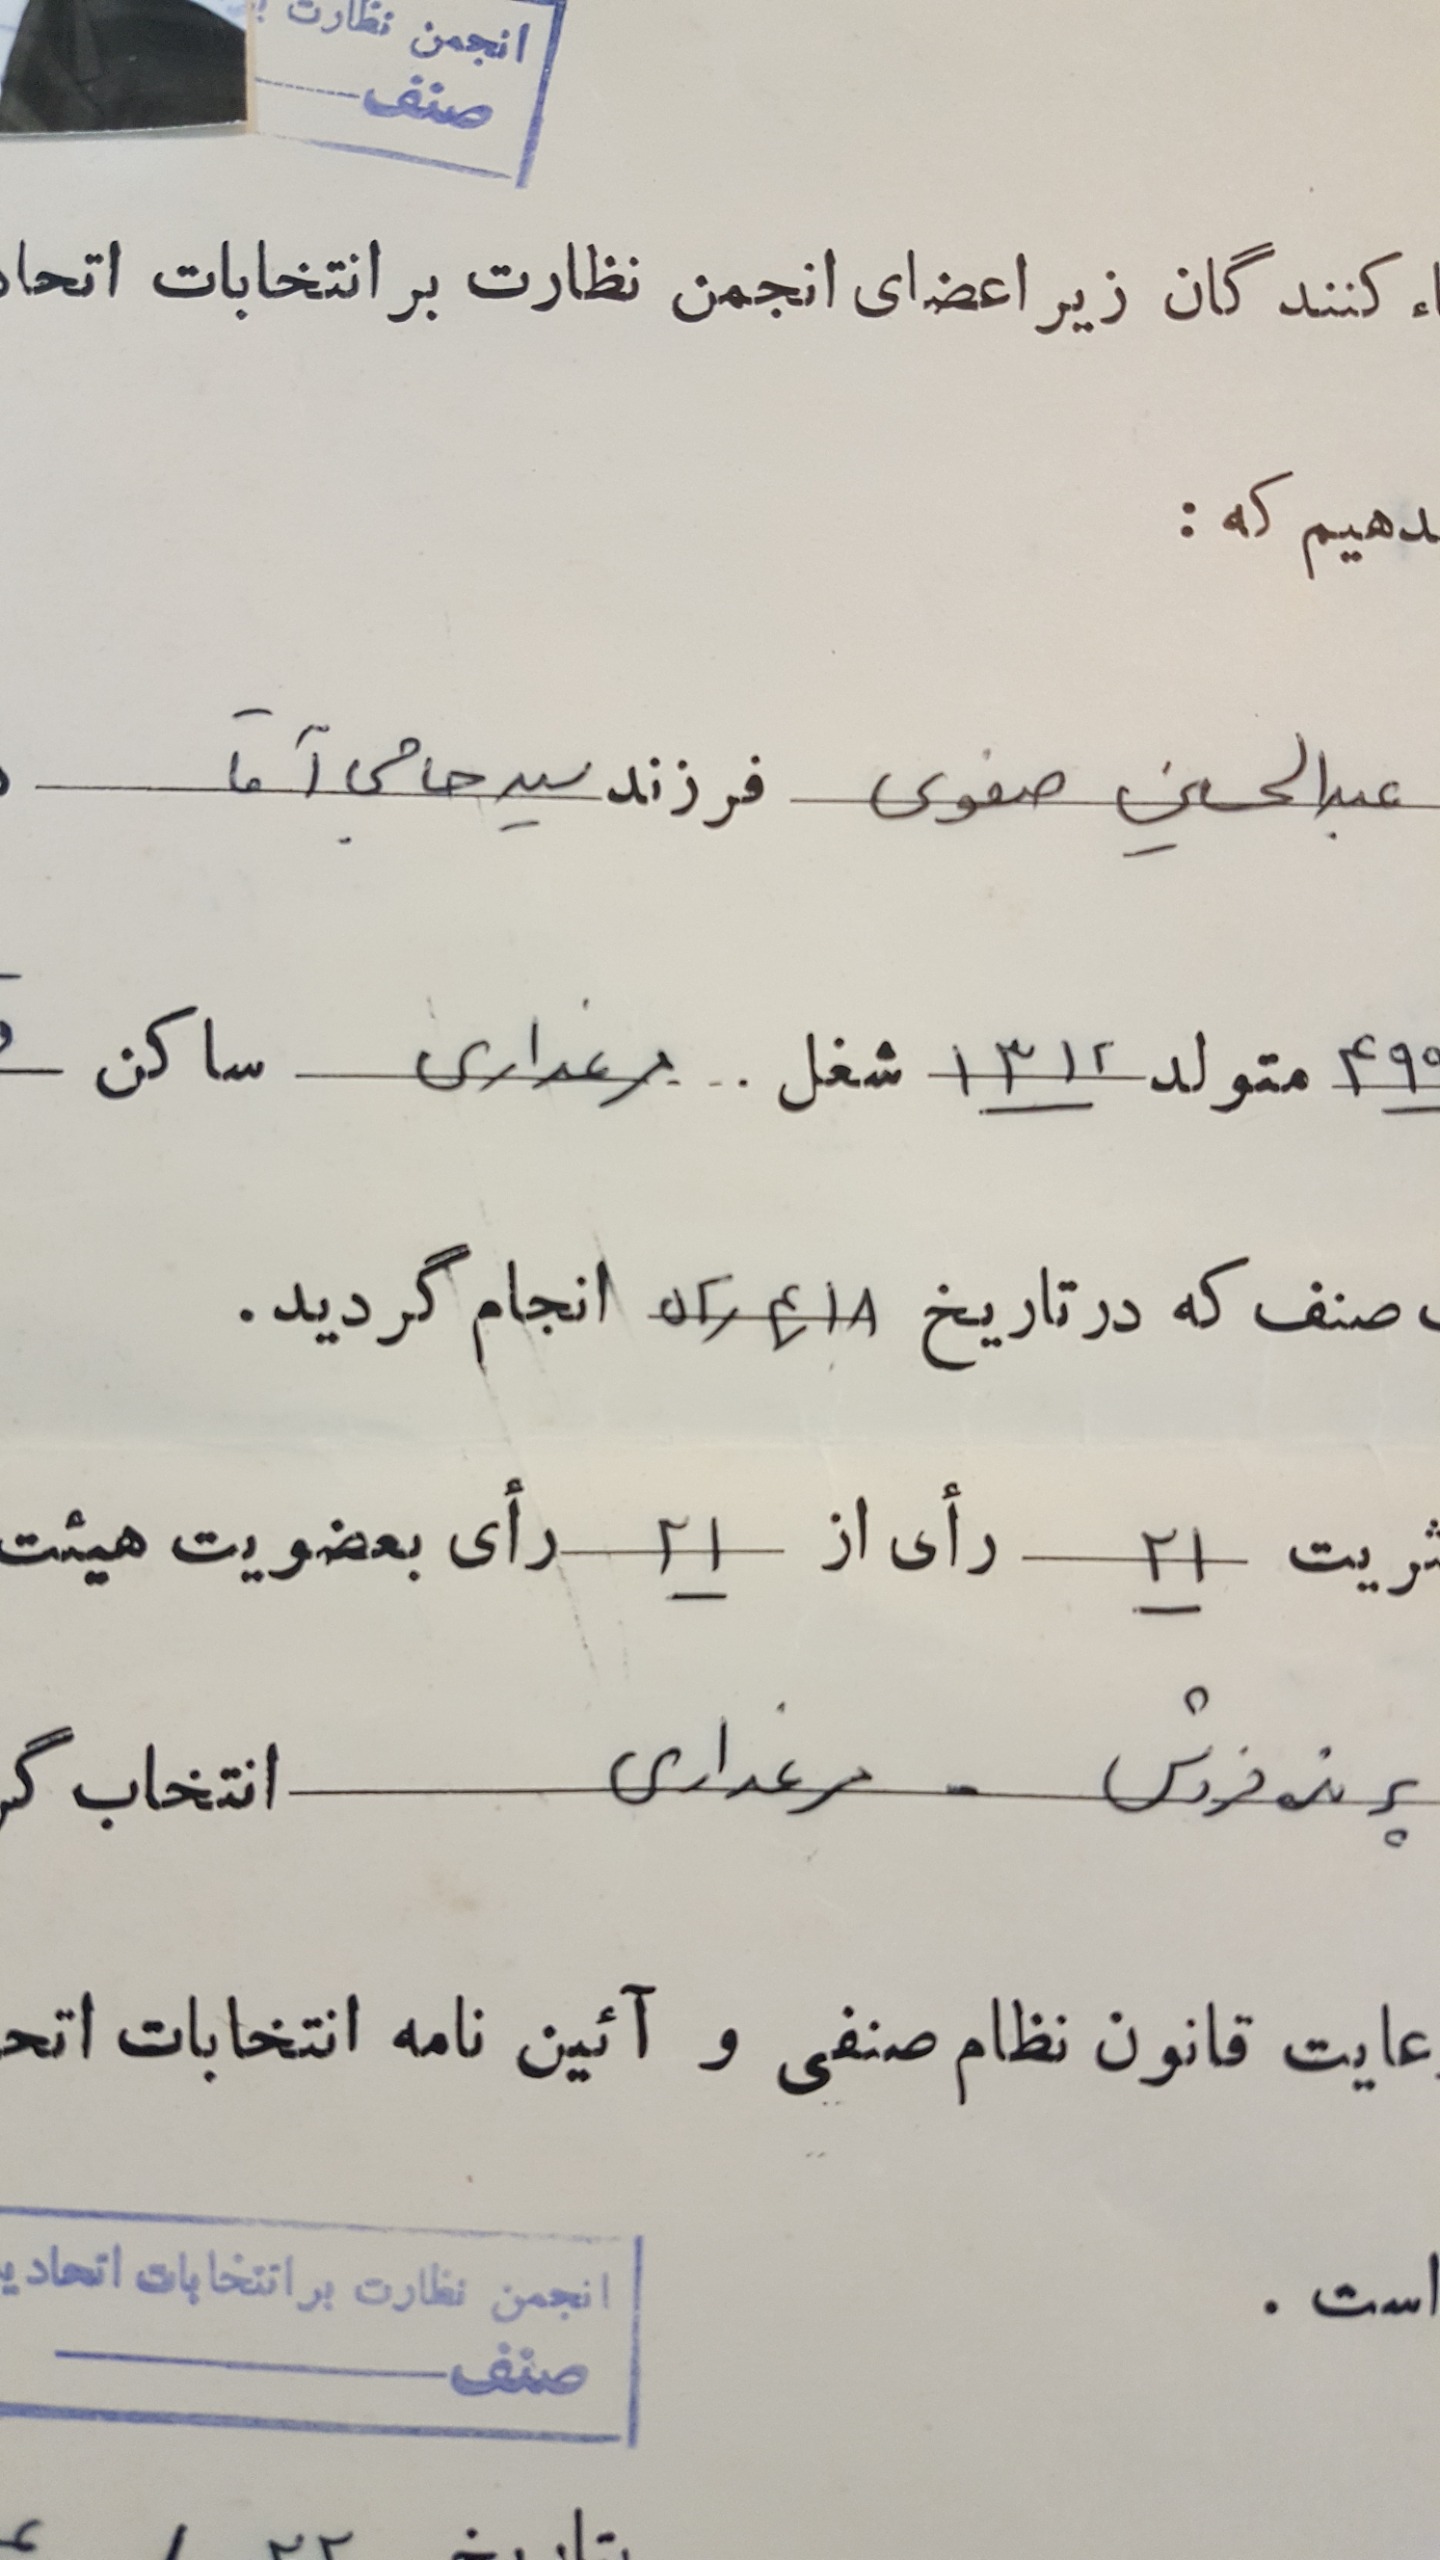 انجمن نظارت
صنف
کنندگان زیر اعضای انجمن نظارت بر انتخابات
که :
عبدالحسین صفوی فرزند سید حاجی آقا
متولد ۱۳۱۲ شغل مرغداری ساکن
صنف که در تاریخ ۱۸/۴/۵۲ انجام گردید.
۲۱ رأی از ۲۱ رأی بعضویت هیئت
پرنده فروش - مرغداری انتخاب
قانون نظام صنفی و آئین نامه انتخابات
است .
انجمن نظارت بر انتخابات
صنف